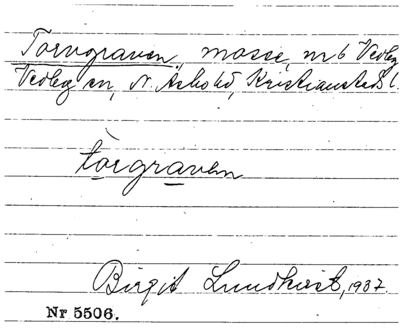 Torvgraven, mosse, nr 6 Vedby
Vedby sn, N. Åsbohd, Kristianstads l.
tòrgraven
Birgit Lundkvist, 1937.
Nr 5506.